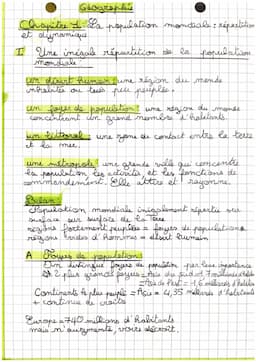 Géographie
Chapitre 1: La population mondiale: répartition
et dynamique
I Une inégale répartition de la population
mondiale
un désert humain: une région du monde
inhabité ou très peu peuplée.
un foyer de population: une région du monde
concentrant un grand nombre d'habitants.
un littoral: une zone de contact entre la terre
et la mer.
une métropole: une grande ville qui concentre
la population, les activités et les fonctions de
commandement. Elle attire et rayonne.
Bilan:
Population mondiale inégalement répartie sur
surface sur surface de la Terre
régions fortement peuplées = foyers de population
régions vides d'hommes = désert humain
A Foyers de population
On distingue foyers de population par leur importance
2 plus grands foyers = Asie du sud
Asie de l'est = 1,6 milliards d'habitants
Continents + plus peuplé = Asie = 4,35 milliards d'habitants
+ continue de croître
Europe = 740 millions d'habitants
mais n'augmente, voire décroit.